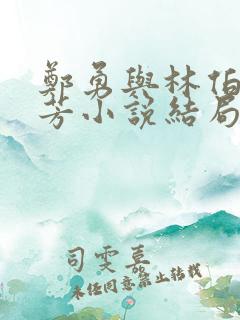 鄭勇與林伯
芳小說結局
司雯嘉
未经同意禁止转载